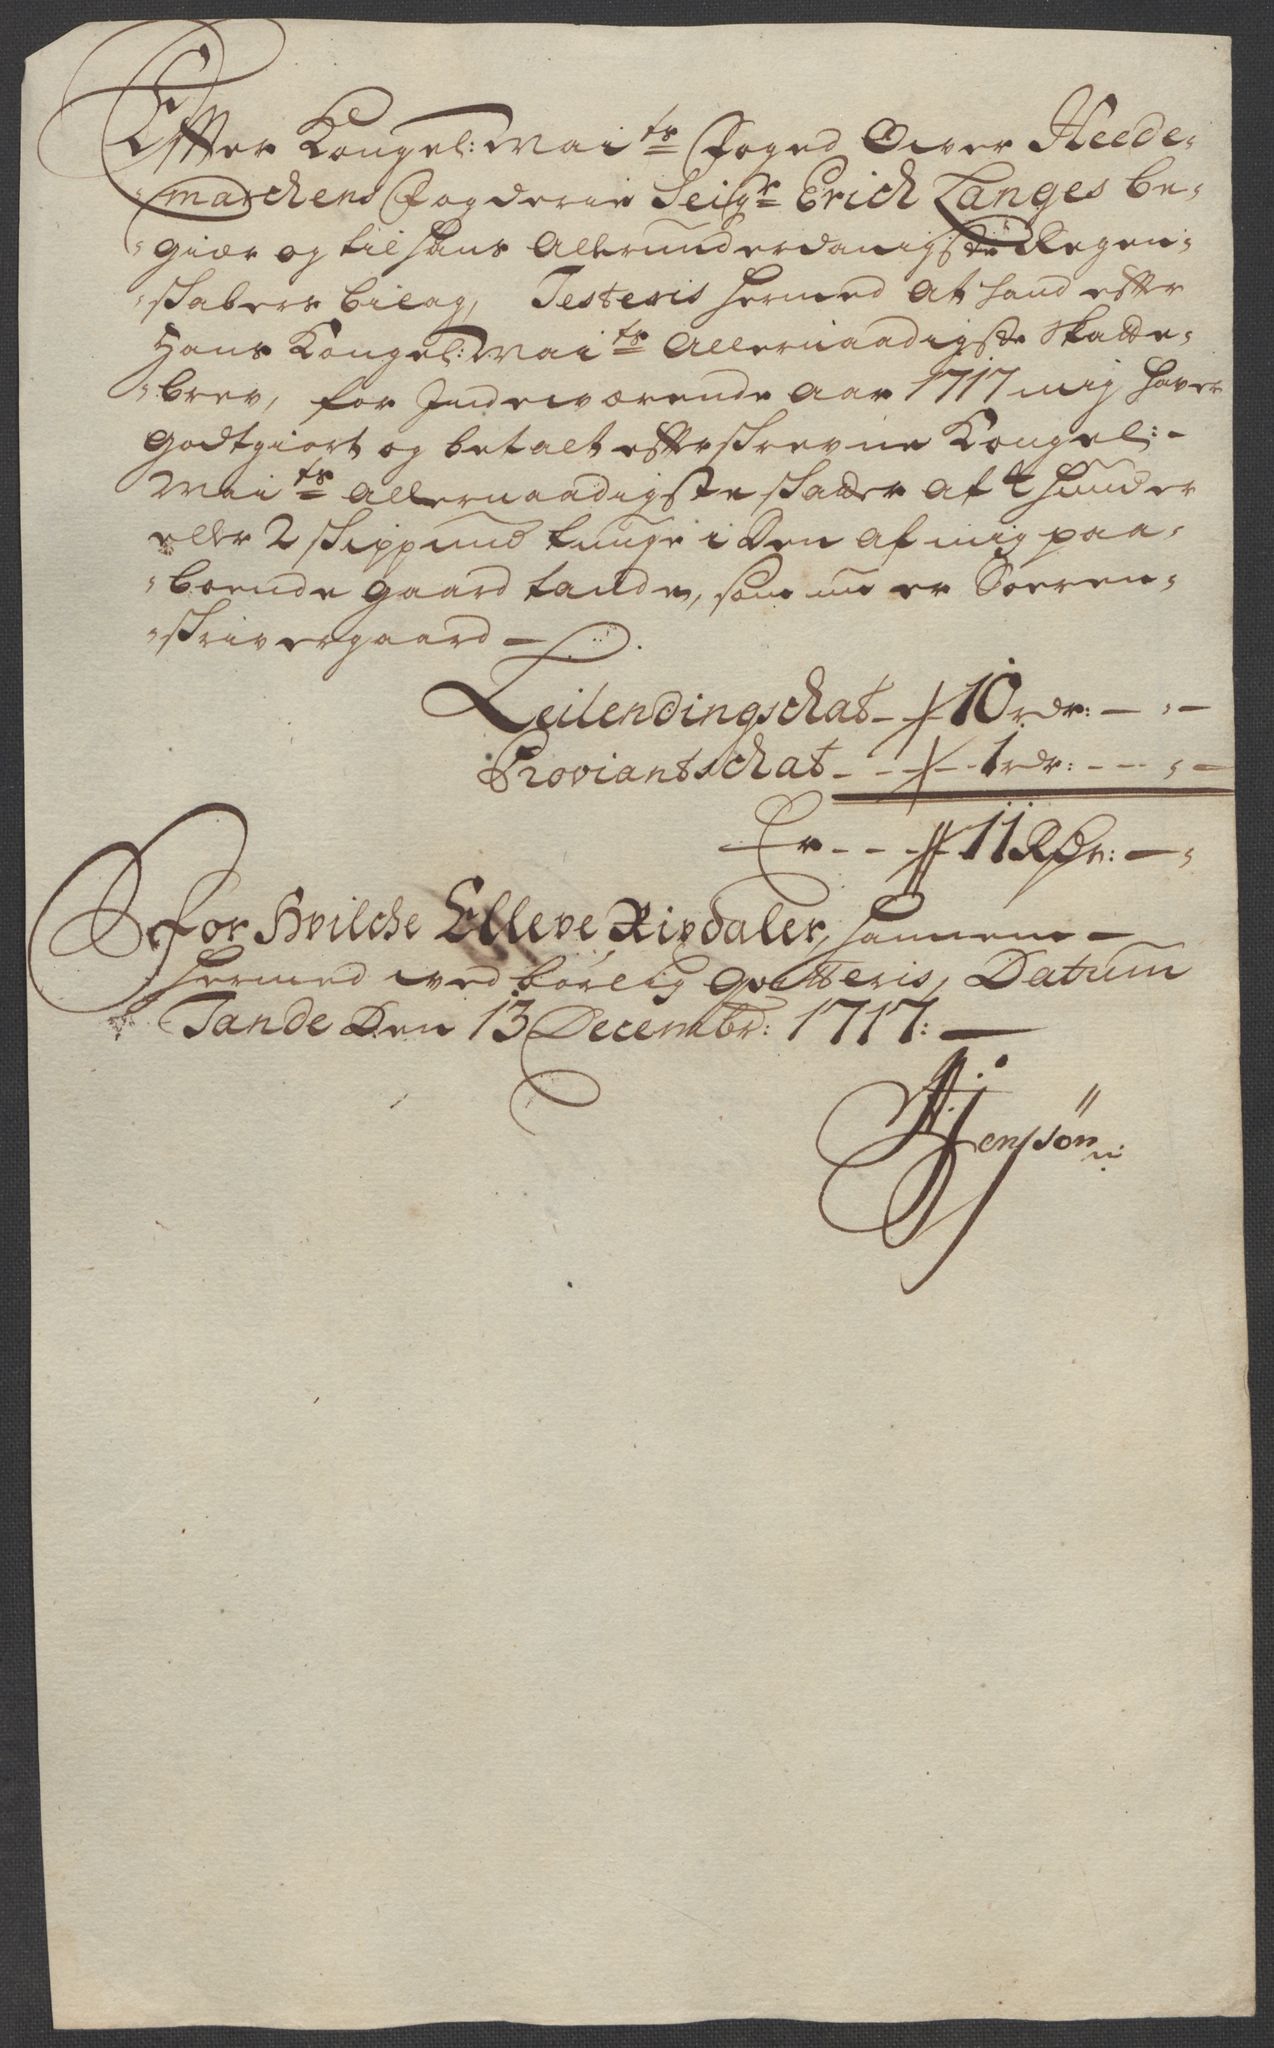 Efter Kongel: Mai ts Foged Over Heede-
marchens Fogderie Seigr Erich Langes be-
giær og til hans Allerunderdanigste Regen-
skabers bilag, Testeris hermed At hand efter
Hans Kongel: Mai ts Allernaadigste Skatte-
brev, for Indeværende Aar 1717 mig haver
godtgiort og betalt efterskrevne Kongel:-
Mai ts Allernaadigste skatter af 4 hunder
eller 2 skippund tunge i Den af mig paa-
boende gaard tande, som nu er Soeren-
skrivergaard —
Leilendingschat - 10 rdr: - " -
Proviantschat - - - 1 rdr: - - - " -
Er - - - 11 Rdr: - "
for Hvilche Elleve Rixdaler, hannem -
hermed ved børlig Qvitteris, Datum
Tande Den 13 Decembr: 1717: —
Jenssøn